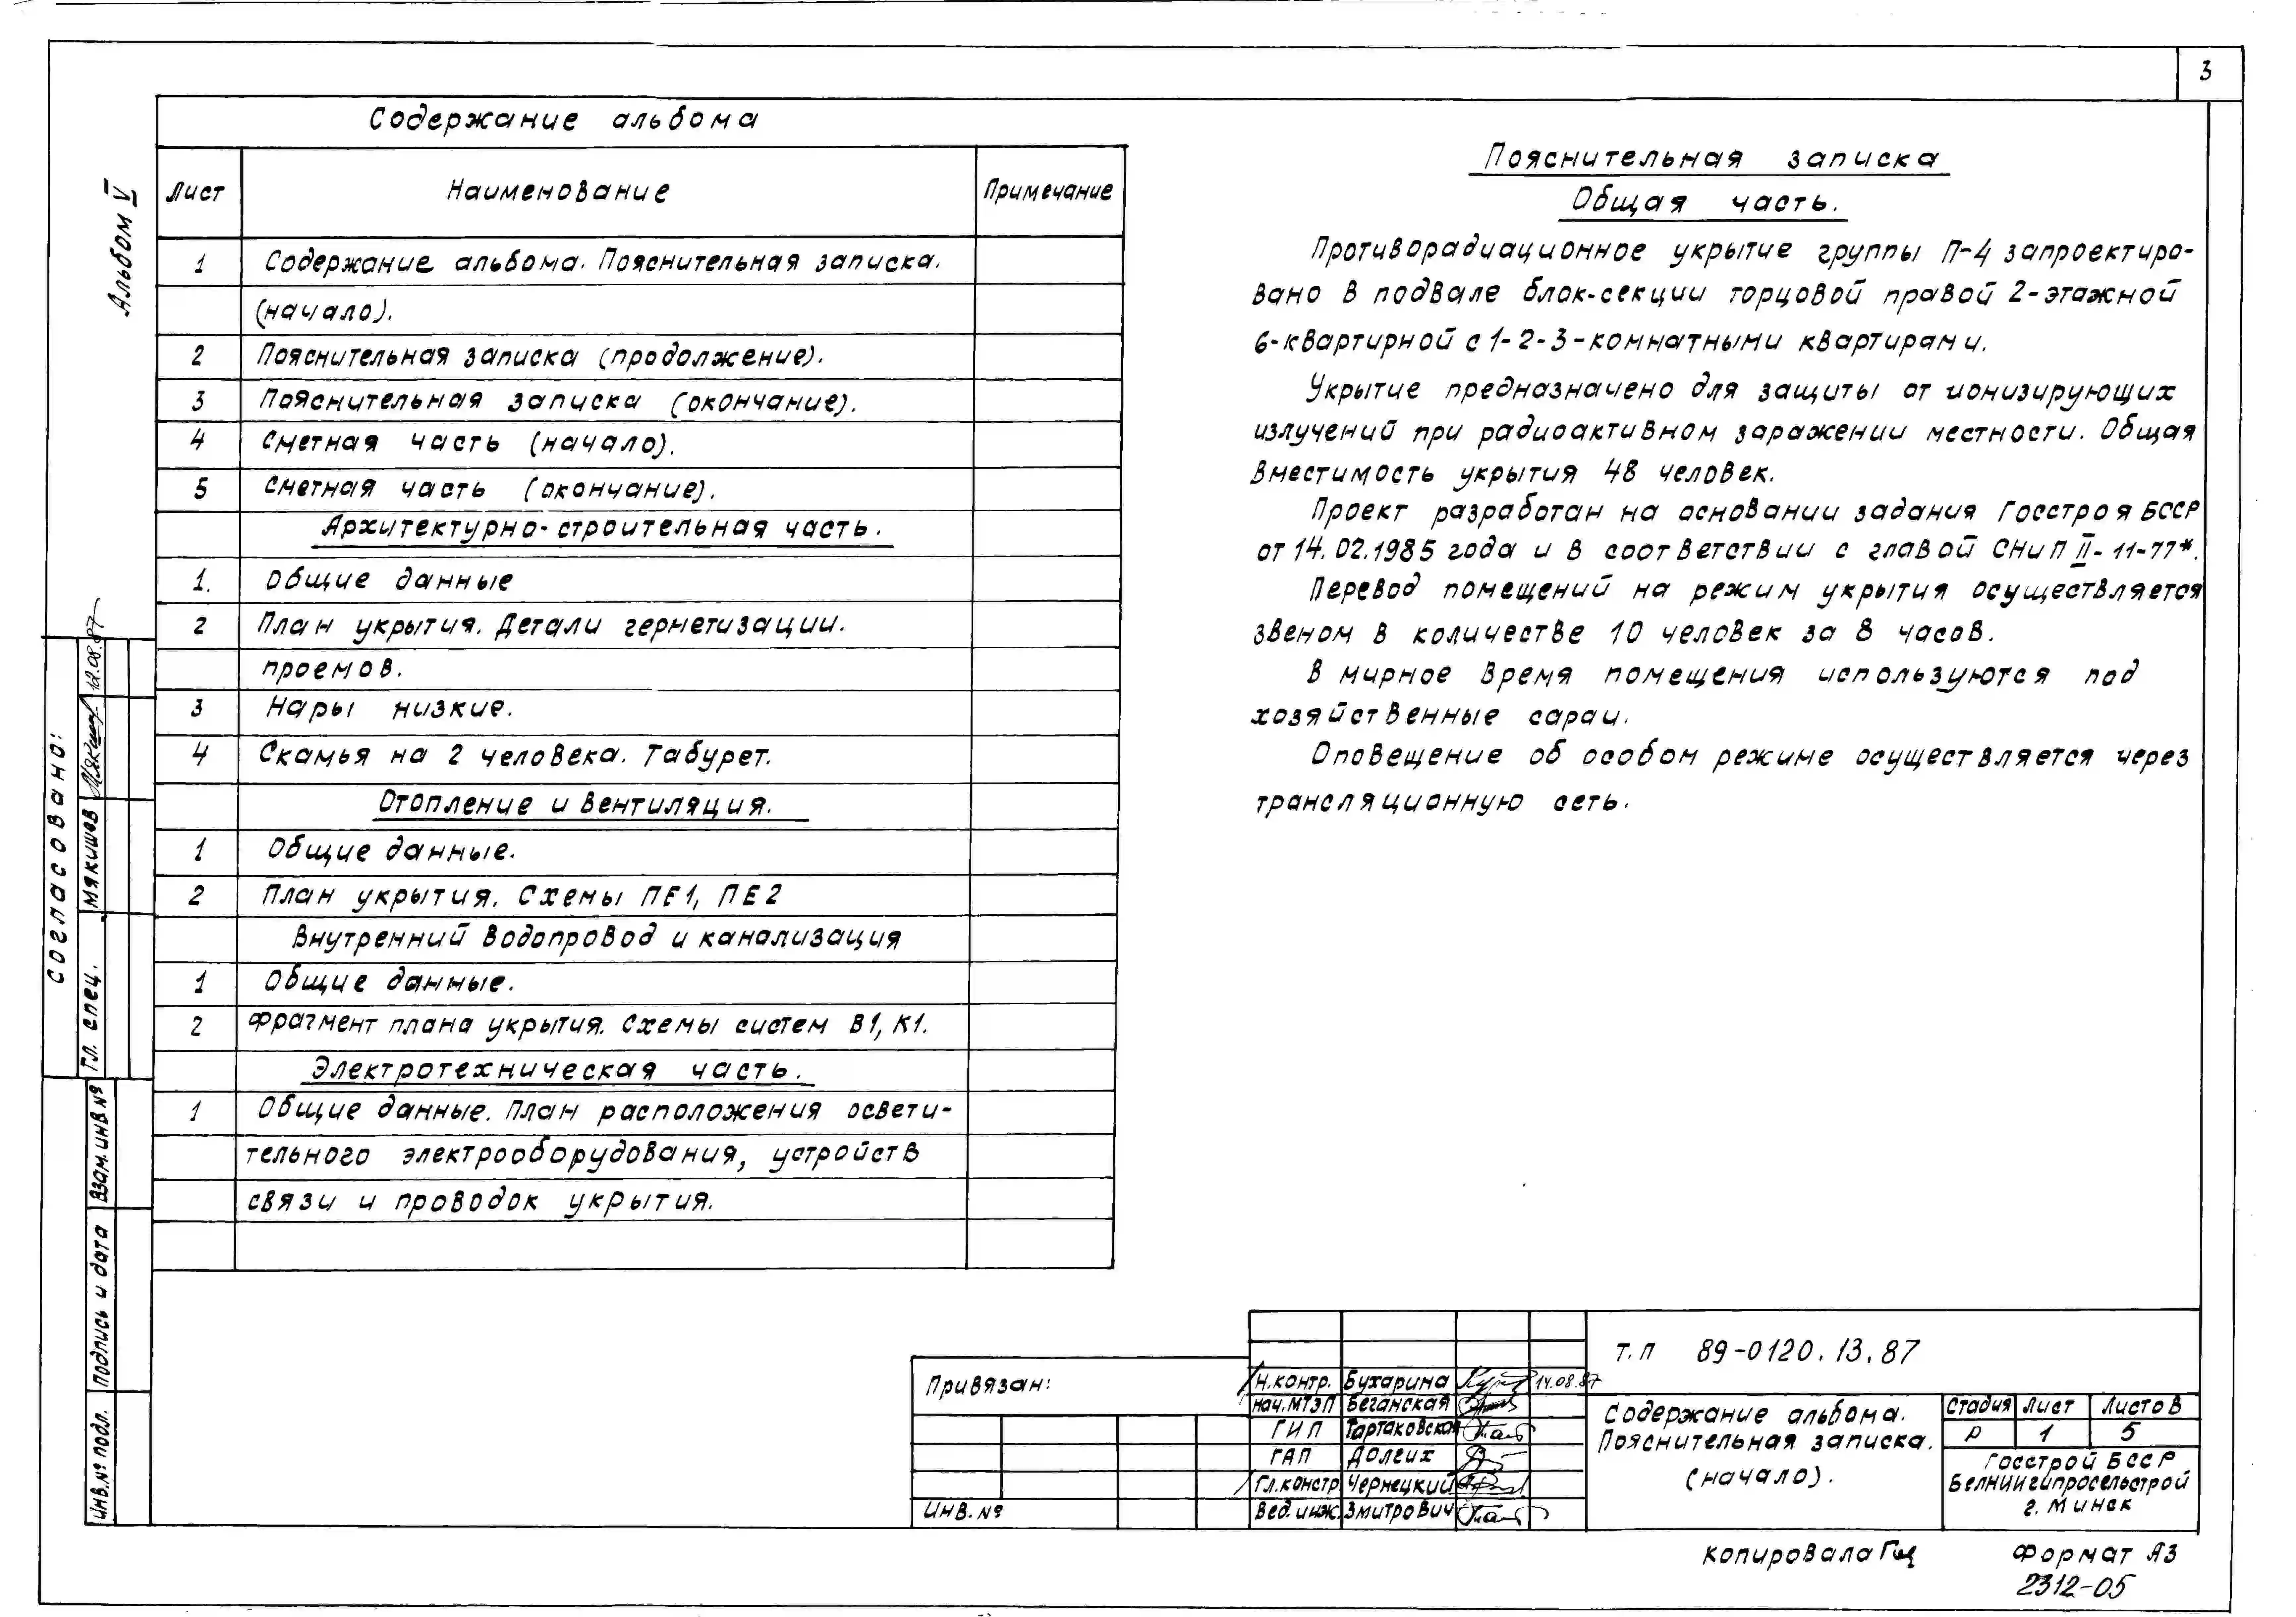 3
Альбом V
Содержание альбома
Лист Наименование Примечание
1 Содержание альбома. Пояснительная записка.
(начало).
2 Пояснительная записка (продолжение).
3 Пояснительная записка (окончание).
4 Сметная часть (начало).
5 Сметная часть (окончание).
Архитектурно-строительная часть.
1. Общие данные
2 План укрытия. Детали герметизации.
проемов.
3 Нары низкие.
4 Скамья на 2 человека. Табурет.
Отопление и вентиляция.
1 Общие данные.
2 План укрытия. Схемы ПЕ1, ПЕ2
Внутренний водопровод и канализация
1 Общие данные.
2 Фрагмент плана укрытия. Схемы систем В1, К1.
Электротехническая часть.
1 Общие данные. План расположения освети-
тельного электрооборудования, устройств
связи и проводок укрытия.
Пояснительная записка
Общая часть.
Противорадиационное укрытие группы П-4 запроектиро-
вано в подвале блок-секции торцовой правой 2-этажной
6-квартирной с 1-2-3-комнатными квартирами.
Укрытие предназначено для защиты от ионизирующих
излучений при радиоактивном заражении местности. Общая
вместимость укрытия 48 человек.
Проект разработан на основании задания Госстроя БССР
от 14.02.1985 года и в соответствии с главой СНиП II-11-77*.
Перевод помещений на режим укрытия осуществляется
звеном в количестве 10 человек за 8 часов.
В мирное время помещения используются под
хозяйственные сараи.
Оповещение об особом режиме осуществляется через
трансляционную сеть.
Согласовано:
Гл. спец. Мякишев 12.08.87
Взам. инв №
Подпись и дата
Инв. № подл.
Привязан:
Инв. №
Н.контр. Бухарина 14.08.87
Нач. МТЭП Беганская
ГИП Тартаковская
ГАП Долгих
Гл.констр. Чернецкий
Вед. инж. Змитрович
Т.П 89-0120.13.87
Содержание альбома.
Пояснительная записка.
(начало).
Стадия Лист Листов
Р 1 5
Госстрой БССР
Белниигипросельстрой
г. Минск
Копировала
Формат А3
2312-05